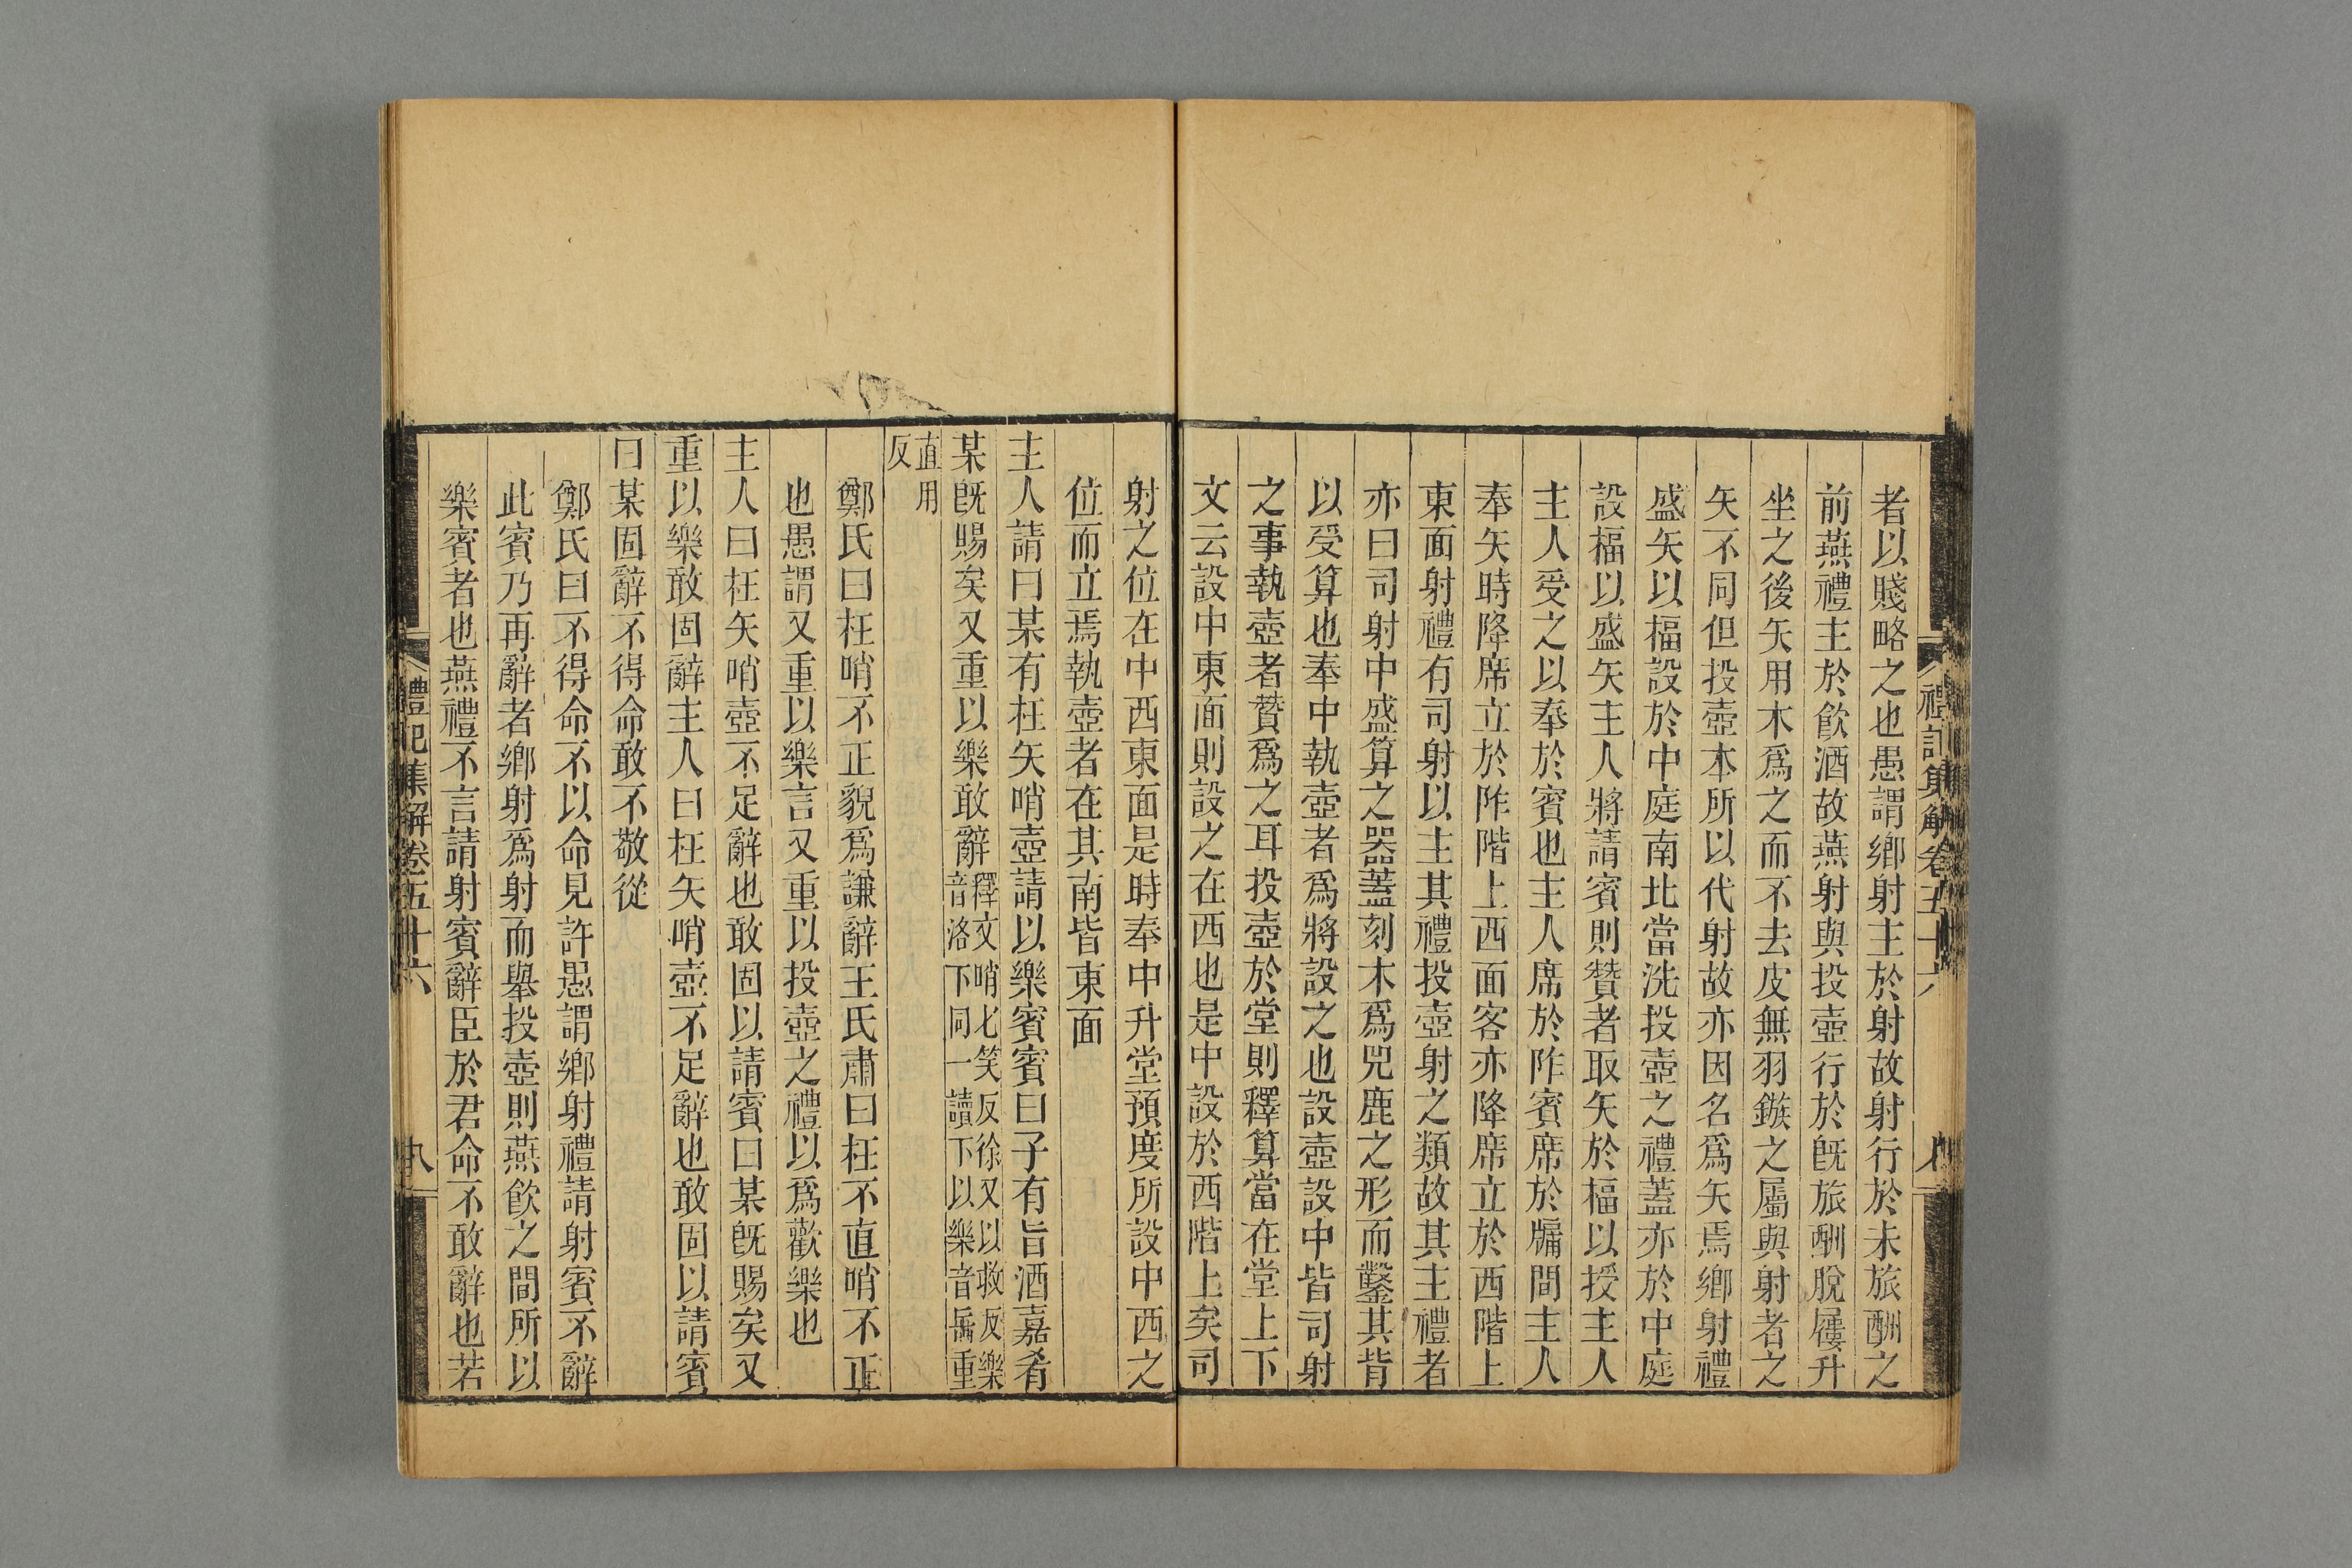 禮記集解卷五十六
者以賤略之也愚謂鄉射主於射故射行於未旅酬之
前燕禮主於飮酒故燕射與投壺行於旣旅酬脫屨升
坐之後矢用木爲之而不去皮無羽鏃之屬與射者之
矢不同但投壺本所以代射故亦因名爲矢焉鄉射禮
盛矢以楅設於中庭南北當洗投壺之禮蓋亦於中庭
設楅以盛矢主人將請賓則贊者取矢於楅以授主人
主人受之以奉於賓也主人席於阼賓席於牖間主人
奉矢時降席立於阼階上西面客亦降席立於西階上
東面射禮有司射以主其禮投壺射之類故其主禮者
亦曰司射中盛算之器蓋刻木爲兕鹿之形而鑿其背
以受算也奉中執壺者爲將設之也設壺設中皆司射
之事執壺者贊爲之耳投壺於堂則釋算當在堂上下
文云設中東面則設之在西也是中設於西階上矣司
射之位在中西東面是時奉中升堂預度所設中西之
位而立焉執壺者在其南皆東面
主人請曰某有枉矢哨壺請以樂賓賓曰子有旨酒嘉肴
某旣賜矣又重以樂敢辭釋文哨七笑反徐又以救反樂
音洛下同一讀下以樂音岳重
直用
反
鄭氏曰枉哨不正貌爲謙辭王氏肅曰枉不直哨不正
也愚謂又重以樂言又重以投壺之禮以爲歡樂也
主人曰枉矢哨壺不足辭也敢固以請賓曰某旣賜矣又
重以樂敢固辭主人曰枉矢哨壺不足辭也敢固以請賓
曰某固辭不得命敢不敬從
鄭氏曰不得命不以命見許愚謂鄉射禮請射賓不辭
此賓乃再辭者鄉射爲射而舉投壺則燕飮之間所以
樂賓者也燕禮不言請射賓辭臣於君命不敢辭也若
禮記集解卷五十六
九